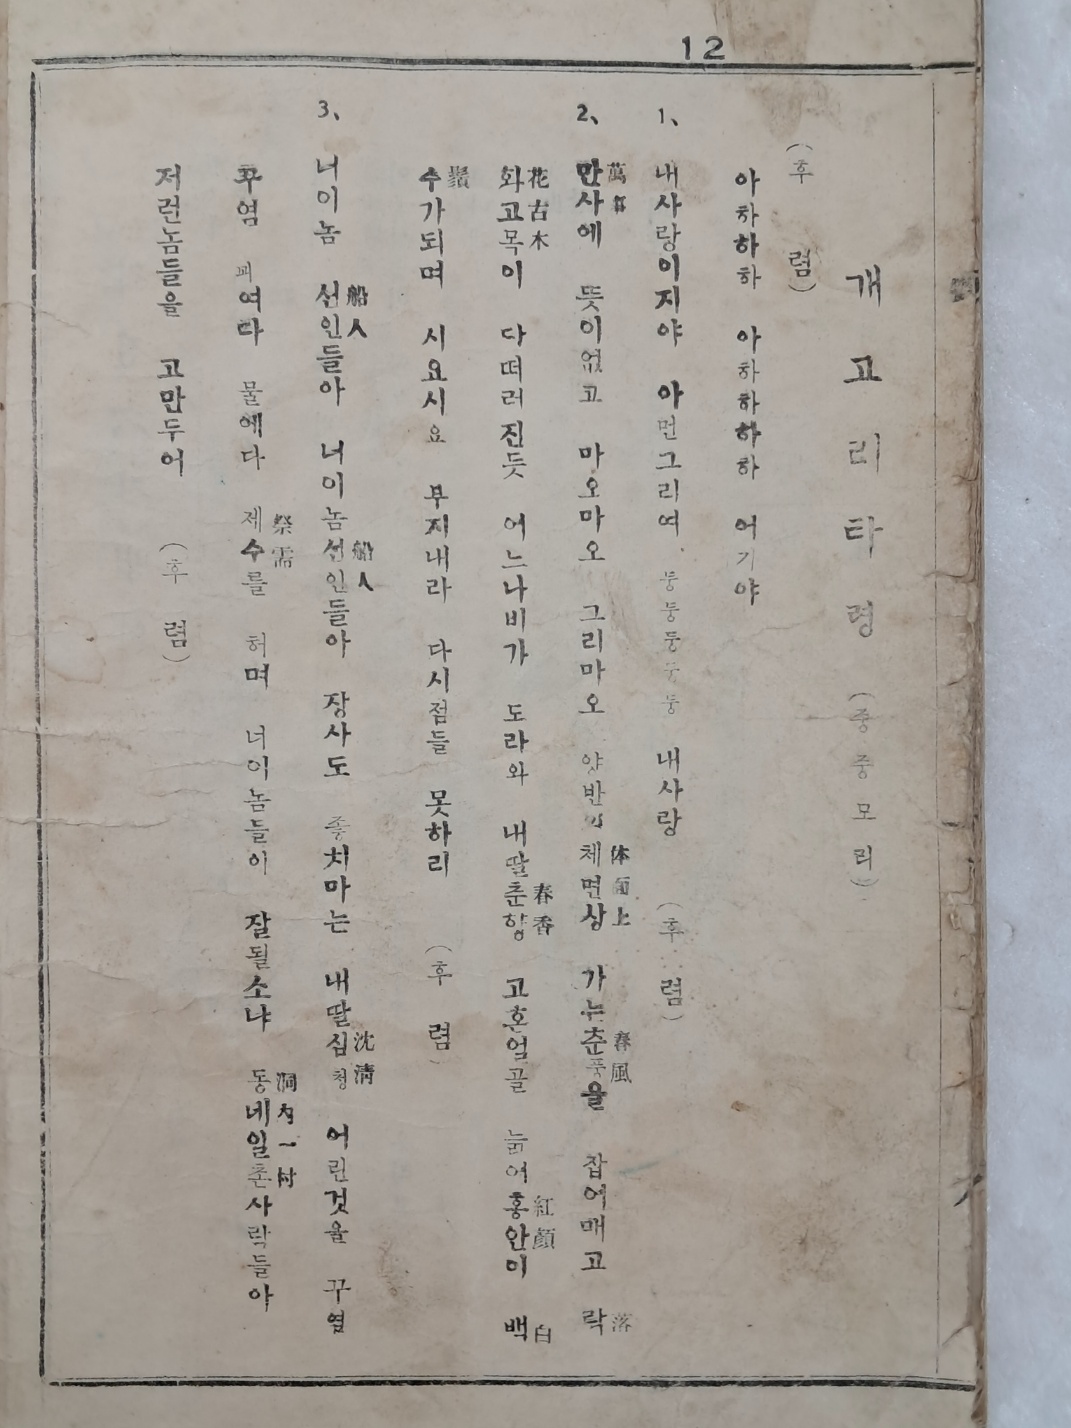 12
개고리타령 (중중모리)
(후렴)
아하하하 아하하하하 어기야
1、 내사랑이지야 아먼그리여 둥둥둥두둥 내사랑 (후렴)
2、 만사에 뜻이없고 마오마오 그리마오 양반의 체면상 가는춘풍을 잡어매고 락
萬事 体面上 春風 落
화고목이 다떠러진듯 어느나비가 도라와 내딸춘향 고흔얼골 늙어홍안이 백
花古木 春香 紅顔 白
수가되며 시요시요 부지내라 다시점들 못하리 (후렴)
鬚
3、 너이놈 선인들아 너이놈선인들아 장사도 좋치마는 내딸심청 어린것을 꾸염
船人 船人 沈淸
꾸염 꾀여다 물에다 제수를 허며 너이놈들이 잘될소냐 동네일촌사람들아
祭需 洞內一村
저런놈들을 고만두어 (후렴)